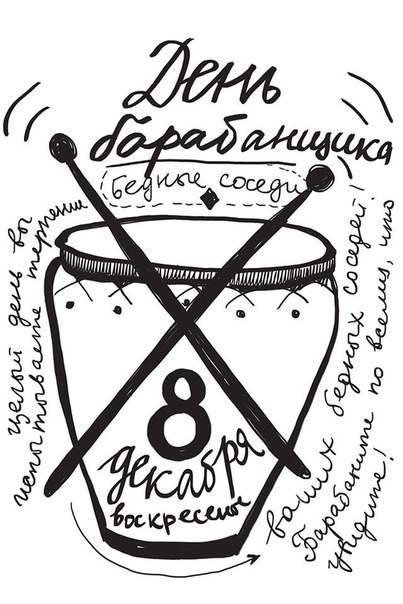 День
барабанщика
Бедные соседи
8
декабря
воскресенье
Целый день вы
испытываете терпение
ваших бедных соседей!
Барабаните по всему, что
увидите!